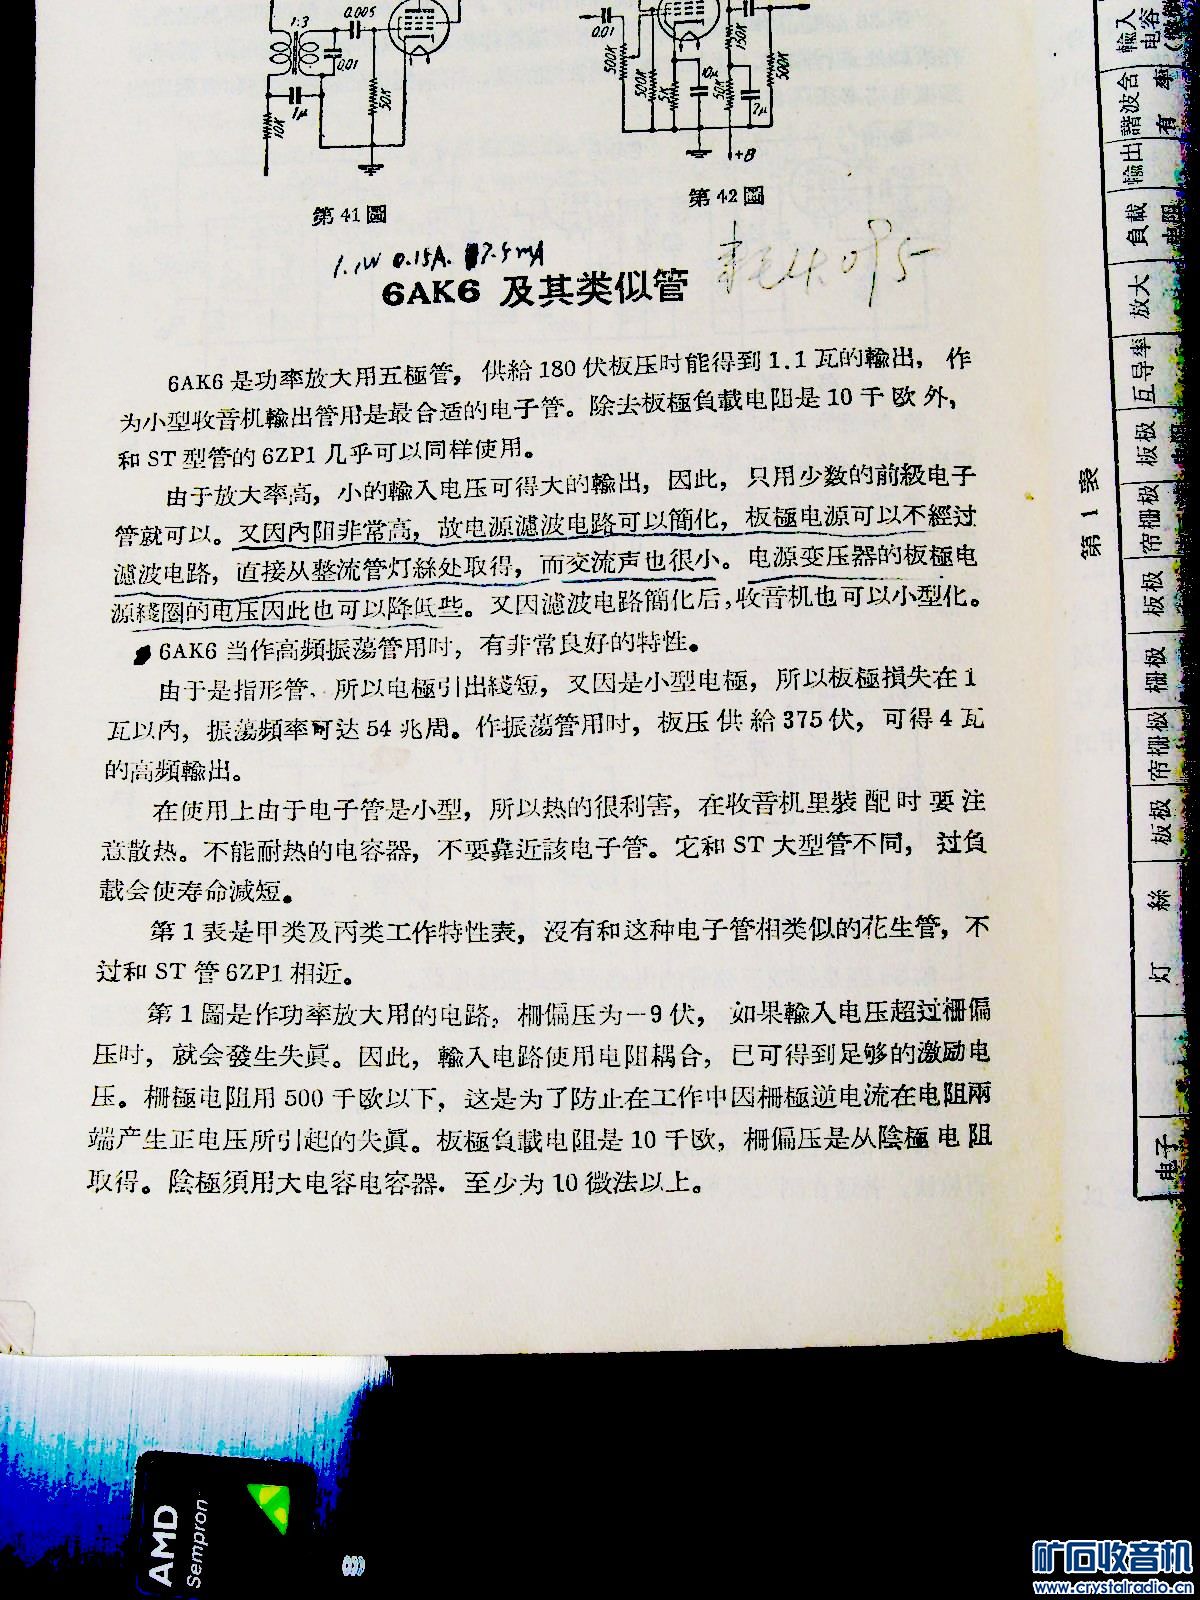 1:3
0.005
0.01
50K
1μ
10K
第 41 圖
0.01
500K
500K
5K
10μ
150K
50K
2μ
500K
+B
第 42 圖
1.1W 0.15A. 7.5mA
6AK6 及其类似管
6AK6 是功率放大用五極管，供給 180 伏板压时能得到 1.1 瓦的輸出，作
为小型收音机輸出管用是最合适的电子管。除去板極負載电阻是 10 千欧外，
和 ST 型管的 6ZP1 几乎可以同样使用。
由于放大率高，小的輸入电压可得大的輸出，因此，只用少数的前級电子
管就可以。又因內阻非常高，故电源滤波电路可以簡化，板極电源可以不經过
滤波电路，直接从整流管灯絲处取得，而交流声也很小。电源变压器的板極电
源綫圈的电压因此也可以降低些。又因滤波电路簡化后，收音机也可以小型化。
6AK6 当作高頻振荡管用时，有非常良好的特性。
由于是指形管，所以电極引出綫短，又因是小型电極，所以板極損失在 1
瓦以內，振荡頻率可达 54 兆周。作振荡管用时，板压供給 375 伏，可得 4 瓦
的高頻輸出。
在使用上由于电子管是小型，所以热的很利害，在收音机里裝配时要注
意散热。不能耐热的电容器，不要靠近該电子管。它和 ST 大型管不同，过負
載会使寿命減短。
第 1 表是甲类及丙类工作特性表，沒有和这种电子管相类似的花生管，不
过和 ST 管 6ZP1 相近。
第 1 圖是作功率放大用的电路，柵偏压为－9 伏，如果輸入电压超过柵偏
压时，就会發生失眞。因此，輸入电路使用电阻耦合，已可得到足够的激励电
压。柵極电阻用 500 千欧以下，这是为了防止在工作中因柵極逆电流在电阻兩
端产生正电压所引起的失眞。板極負載电阻是 10 千欧，柵偏压是从陰極电阻
取得。陰極須用大电容电容器，至少为 10 微法以上。
第 1 表
电子
灯 絲
板极
帘柵极
柵极
板极
帘柵极
板极
电阻
互导率
放大
負載
电阻
輸出
諧波含
有 率
輸入
电容
AMD
Sempron
矿石收音机
www.crystalradio.cn